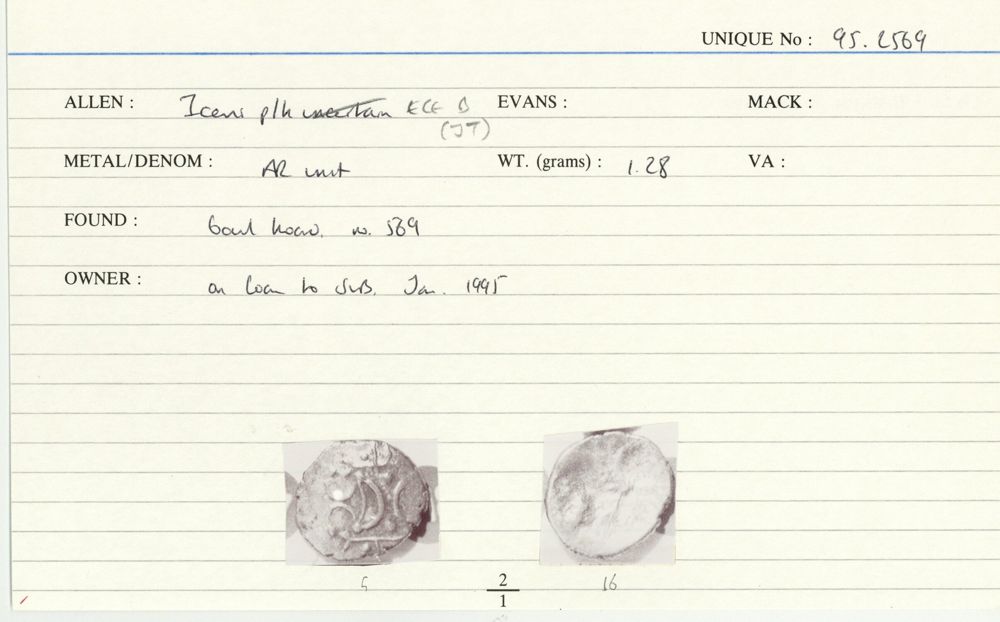 UNIQUE No : 95.2569
ALLEN : Iceni p/h uncertain ECE B EVANS : MACK :
(JT)
METAL/DENOM : AR unit WT. (grams) : 1.28 VA :
FOUND : hoard. no. 569
OWNER : on loan to Jan. 1995
2
16
1